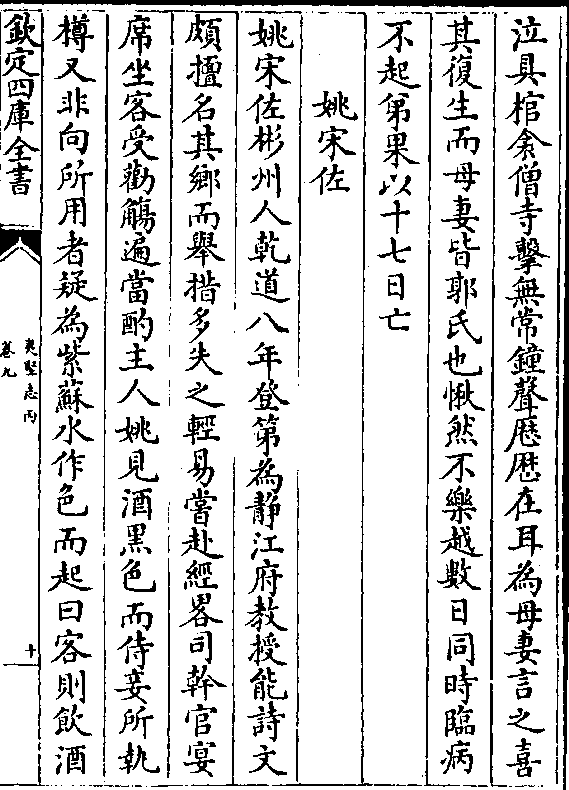 泣具棺衾僧寺擊無常鐘聲歴歴在耳為母妻言之喜
其復生而母妻皆郭氏也愀然不樂越數日同時臨病
不起第果以十七日亡
姚宋佐
姚宋佐彬州人乾道八年登第為靜江府教授能詩文
頗擅名其鄉而舉措多失之輕易嘗赴經畧司幹官宴
席坐客受勸觴遍當酌主人姚見酒黑色而侍妾所執
樽又非向所用者疑為紫蘇水作色而起曰客則飲酒
欽定四庫全書
夷堅志丙
卷九
十